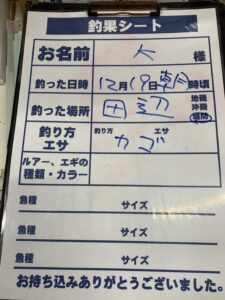 釣果シート
お名前 大 様
釣った日時 12月19日 朝 時頃
釣った場所 田辺 地磯 沖磯 堤防
釣り方 エサ 釣り方 カゴ エサ
ルアー、エギの種類・カラー
魚種 サイズ
魚種 サイズ
魚種 サイズ
お持ち込みありがとうございました。